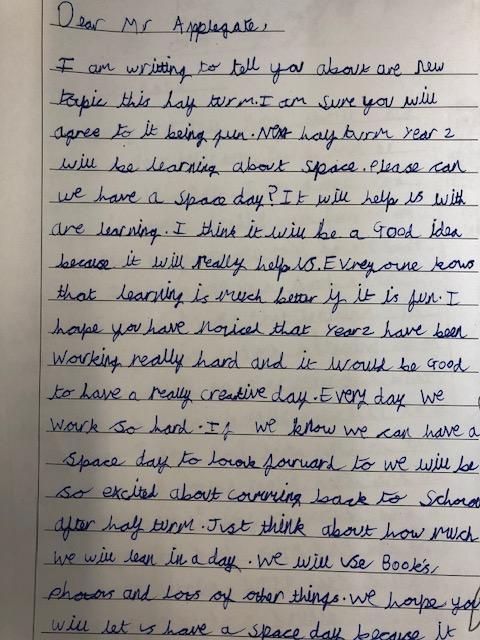 Dear Mr Applegate,
I am writting to tell you about are new
topic this half turm. I am sure you will
agree to it being fun. Next half turm Year 2
will be learning about space. Please can
we have a space day? It will help us with
are learning. I think it will be a Good idea
because it will really help us. Evrey one kows
that learning is much better if it is fun. I
hope you have noticed that Year 2 have been
working really hard and it would be Good
to have a really creative day. Every day we
work so hard. If we know we can have a
space day to look forward to we will be
so excited about comming back to School
after half turm. Just think about how much
we will lean in a day. We will use Book's,
photos and lots of other things. We hope you
will let us have a space day because it